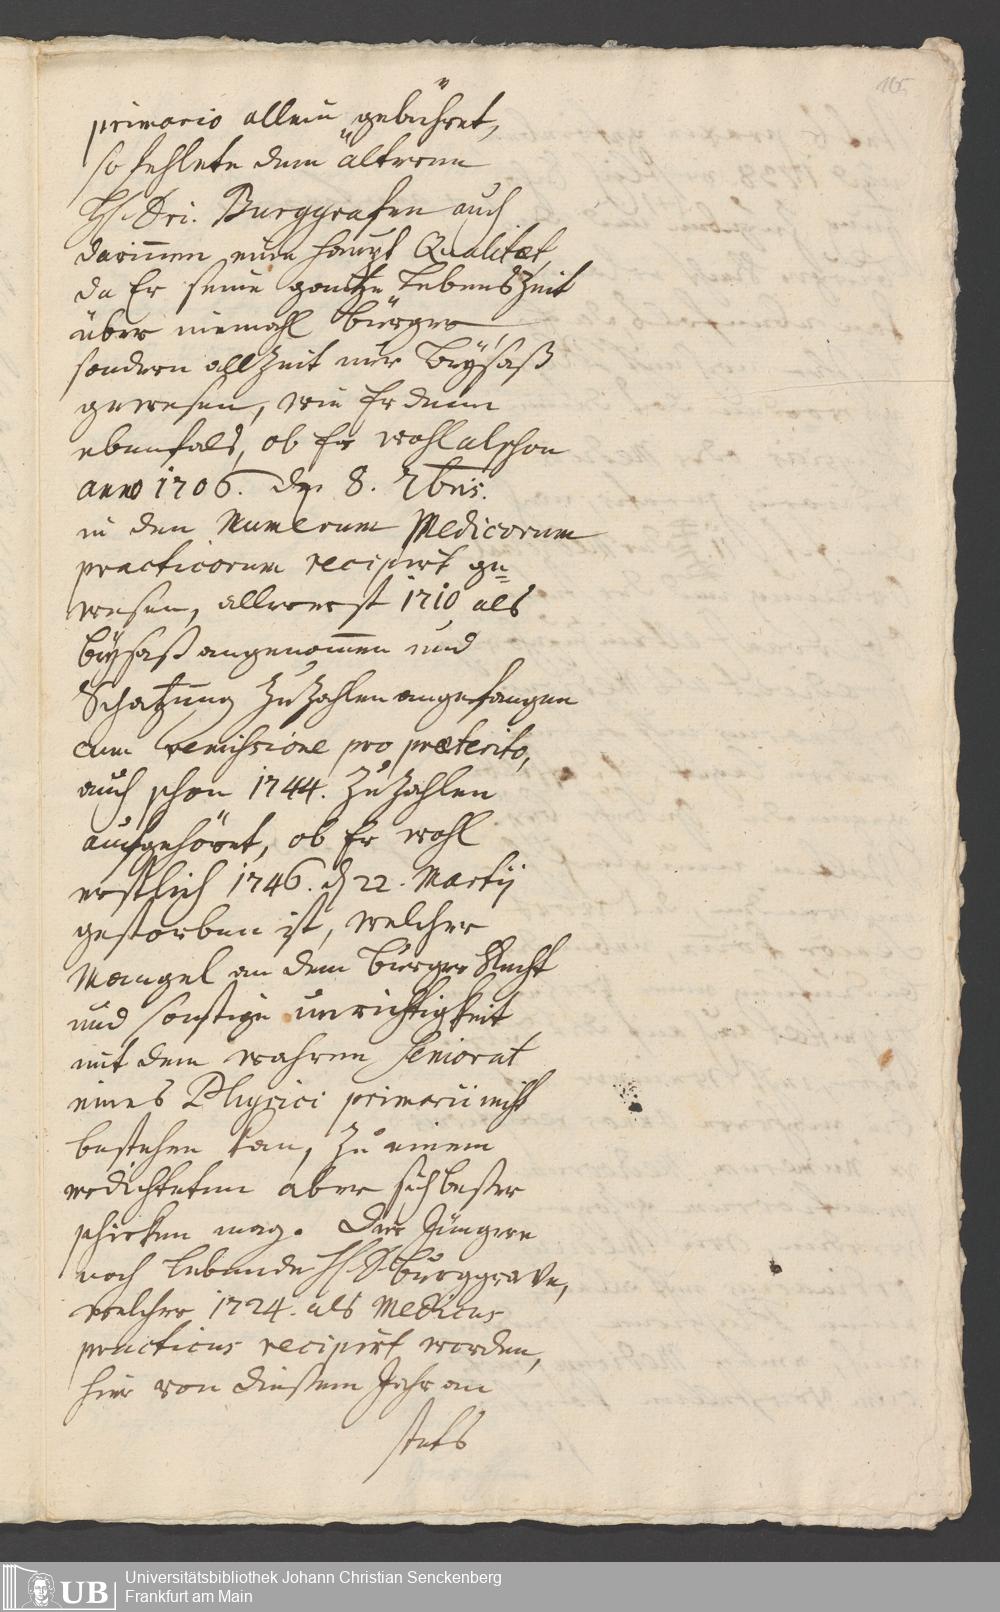 165
primario allein gebühret,
so fehlete dem älteren
H. Dri. Burggrafen auch
darinnen eine haupt Qualitæt,
da Er seine gantze LebensZeit
über niemahl bürger
sondern allZeit nur beysaß
gewesen, wie Er denn
ebenfals, ob Er wohl alschon
anno 1706. den 8. 7bris.
in den Numerum Medicorum
practicorum recipirt ge=
wesen, allererst 1710 als
beysaß angenommen und
Schatzung zu zahlen angefangen
cum remissione pro præterito,
auch schon 1744. zu zahlen
aufgehöret, ob Er wohl
erstlich 1746. d 22. Martij
gestorben ist, welcher
Mangel an dem bürger Recht
und sonstige unrichtigkeit
mit dem wahren Seniorat
eines Physici primarii nicht
bestehen kan, zu einem
erdichteten aber sich beßer
schicken mag. Der Jüngere
noch lebende H. D. burggrave,
welcher 1724. als Medicus
practicus recipirt worden,
hier von dießem Jahr an
stets
UB
Universitätsbibliothek Johann Christian Senckenberg
Frankfurt am Main